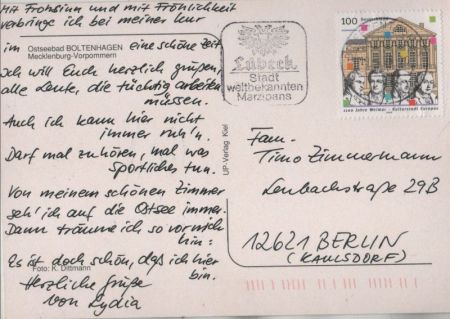 Mit Frohsinn und mit Fröhlichkeit
verbringe ich bei meiner Kur
im eine schöne Zeit
Ostseebad BOLTENHAGEN
Mecklenburg-Vorpommern
Ich will Euch herzlich grüßen,
alle Leute, die tüchtig arbeiten
müssen.
Auch ich kann hier nicht
immer ruh'n.
Darf mal zuhören, mal was
sportliches tun.
Von meinem schönen Zimmer
seh' ich auf die Ostsee immer.
Dann träume ich so vor mich
hin:
Es ist doch schön, daß ich hier
bin.
Foto: K. Dittmann
Herzliche Grüße
von Lydia
UP-Verlag Kiel
Lübeck
Stadt
weltbekannten
Marzipans
100
1100 Jahre Weimar Kulturstadt Europas
Fam.
Timo Zimmermann
Lenbachstraße 29B
12621 BERLIN
(KAULSDORF)